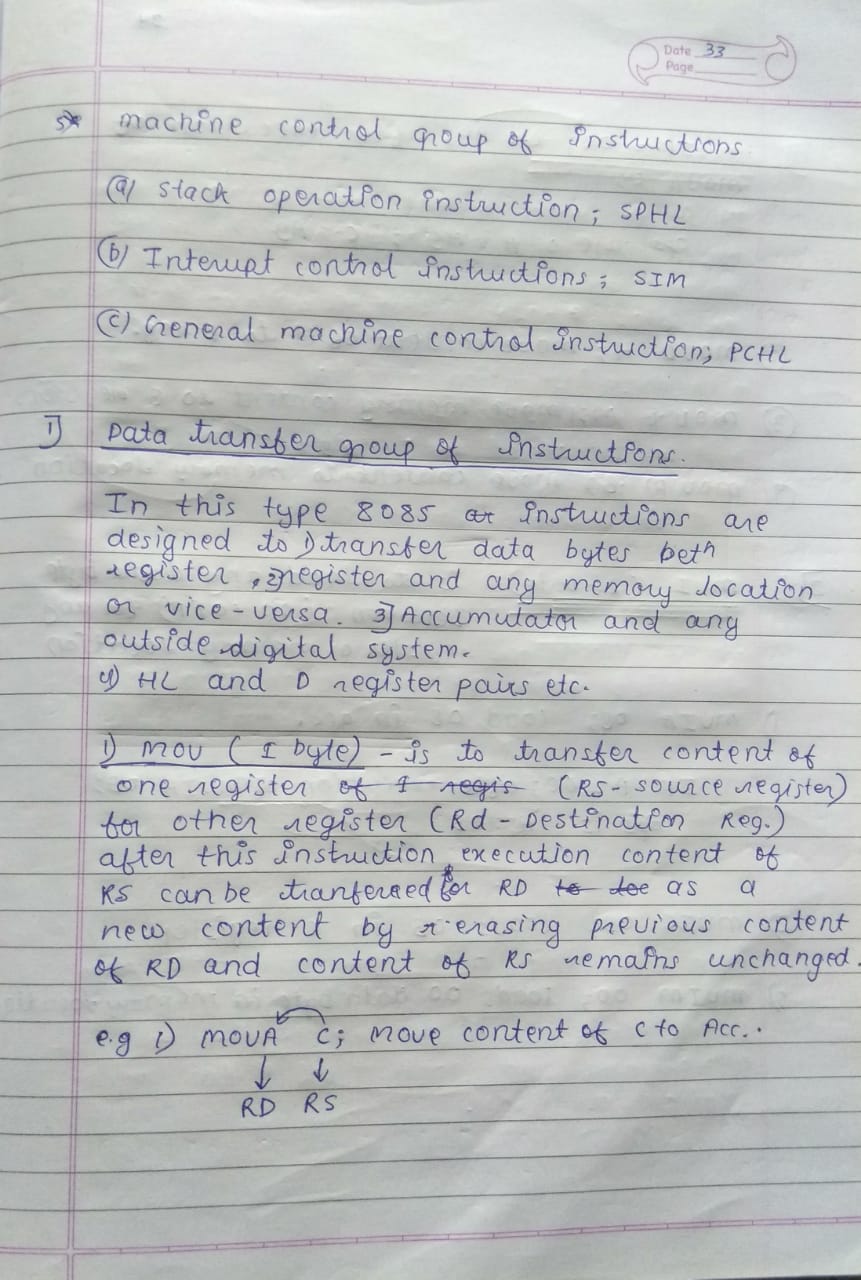 Date 33
Page
5* machine control group of instructions
(a) stack operation instruction; SPHL
(b) Interupt control instructions; SIM
(c) General machine control instruction; PCHL
1] Data transfer group of instructions.
In this type 8085 instructions are
designed to 1) transfer data bytes betn
register, 2) register and any memory location
or vice-versa. 3] Accumutator and any
outside digital system.
4) HL and D register pairs etc.
1) MOV (1 byte) - is to transfer content of
one register of 1 regis (RS- source register)
for other register (Rd - Destination Reg.)
after this instruction execution content of
RS can be tranferred for RD to as a
new content by erasing previous content
of RD and content of RS remains unchanged.
e.g 1) MOVA C; Move content of C to Acc..
↓ ↓
RD RS